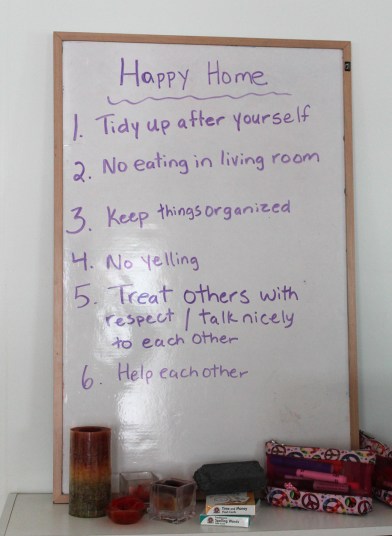 Happy Home
1. Tidy up after yourself
2. No eating in living room
3. Keep things organized
4. No yelling
5. Treat others with
respect / talk nicely
to each other
6. Help each other
Time and Money